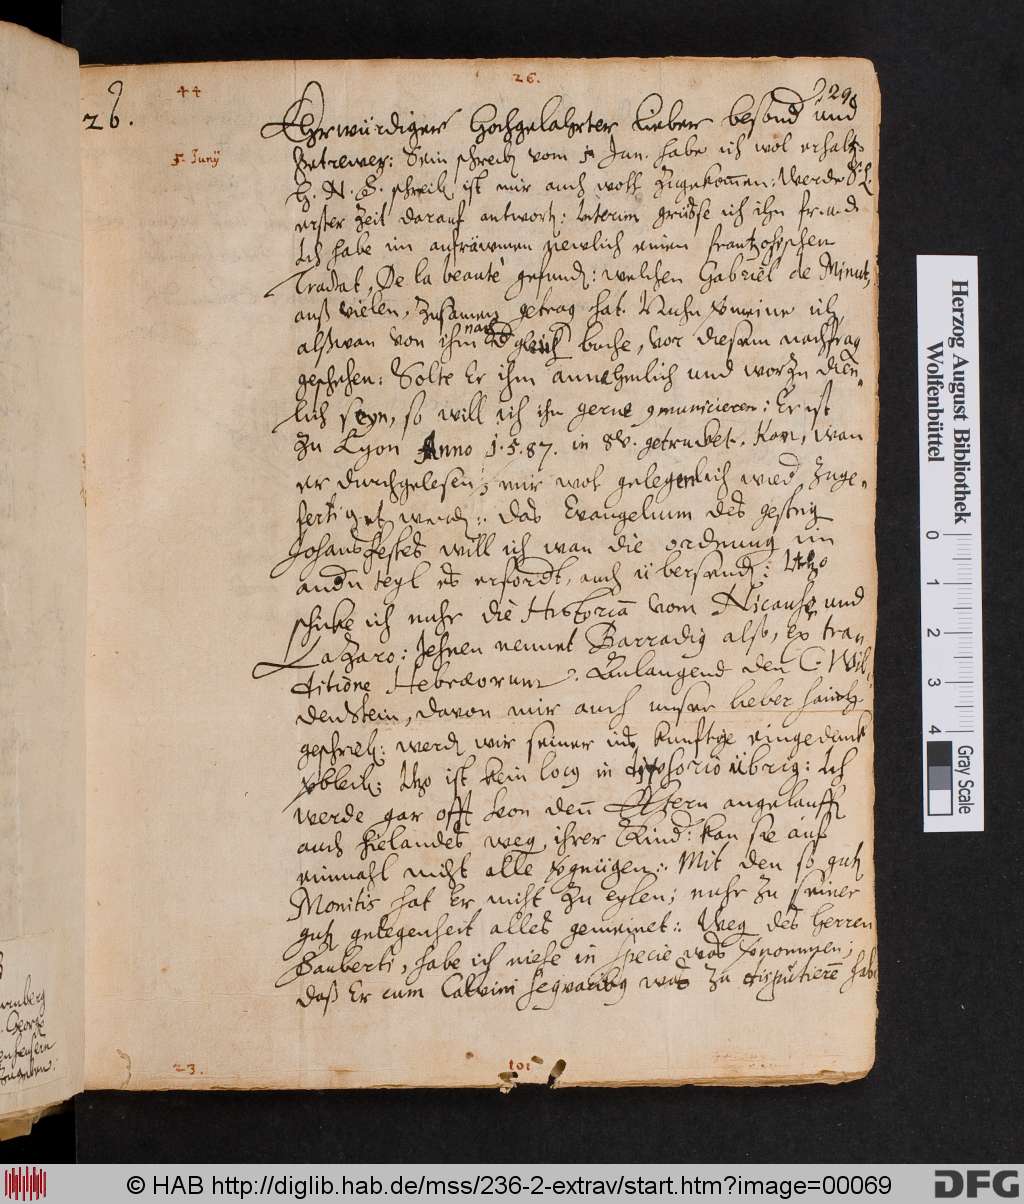 44
26.
229
26.
Ehrwürdiger Hochgelahrter lieber besond und
5. Junÿ
Getrewer: Sein schreib vom 5 Jun. habe ich wol erhalt
H. N. S. schreib ist mir auch wohl zugekom̄en: Werde S. L.
erster Zeit darauf antwort: Interim grüsse ich ihn
Ich habe im aufräwmen newlich einen frantzosischen
Tractat, De la beauté gefund: welchen Gabriel de Minut,
auß vielen, zusamen getrag hat. ich,
von ihm nach gleich buche, vor diesem nachfrag
geschehen: Solte Er ihm annehmlich und worzu dien
lich seyn, so will ich ihn gerne municieren: Er ist
zu Lyon Anno 1.5.87. in 8v. getrucket. Kan, wan
er durchgelesen, mir wol gelegenlich wied zuge-
fertiget werd: Das Evangelium des gestrig
Johans festes will ich wan die ordnung im
andn teyl es erfordt, auch übersend: Itzo
schicke ich nuhr die Historia vom und
Lazaro: Jehnen nennet Barradig also, ex tra
ditione Hebræorum. Anlangend den C. Wil-
denstein, davon mir auch unser lieber
geschrieb: werd wir seiner ins kunftige eingedenck
vbleib: Itzo ist kein locg in übrig: Ich
werde gar offt von den Eltern angelauff
auch hielandes weg ihrer Kind: kan sie auf
einmahl nicht alle vgnügen: Mit den so gut
Monitis hat Er nicht zu eylen; nuhr zu seiner
gut gelegenheit alles gemeinet: Weg des Herren
Sauberti, habe ich niehe in specie was vnommen;
daß Er cum Calvini was zu disputiern hab
23.
101
Herzog August Bibliothek
Wolfenbüttel
0 1 2 3 4
Gray Scale
© HAB http://diglib.hab.de/mss/236-2-extrav/start.htm?image=00069
DFG